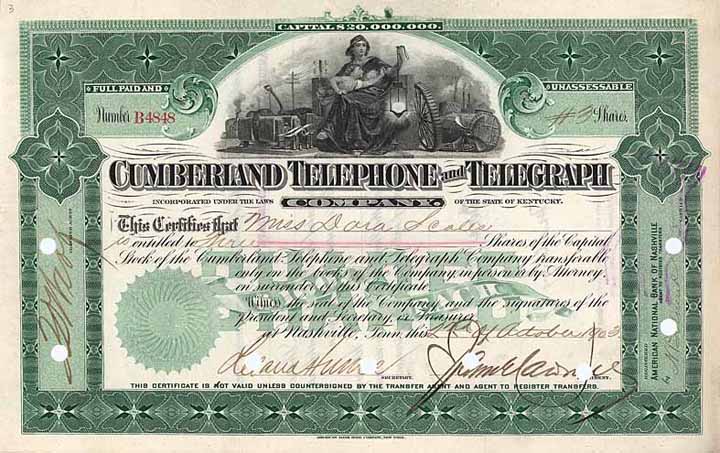 3
CAPITAL $20,000,000.
FULL PAID AND
UNASSESSABLE
Number B4848
#3 Shares.
CUMBERLAND TELEPHONE and TELEGRAPH
INCORPORATED UNDER THE LAWS COMPANY. OF THE STATE OF KENTUCKY.
This Certifies that Miss Dora Scales
is entitled to three Shares of the Capital
Stock of the Cumberland Telephone and Telegraph Company transferable
only on the books of the Company in person or by Attorney
on surrender of this Certificate
Witness the seal of the Company and the signatures of the
President and Secretary, or Treasurer
at Nashville, Tenn. this October 1903
SECRETARY.
THIS CERTIFICATE IS NOT VALID UNLESS COUNTERSIGNED BY THE TRANSFER AGENT AND AGENT TO REGISTER TRANSFERS.
AMERICAN BANK NOTE COMPANY, NEW YORK.
AMERICAN NATIONAL BANK OF NASHVILLE
AGENT TO REGISTER TRANSFERS
by